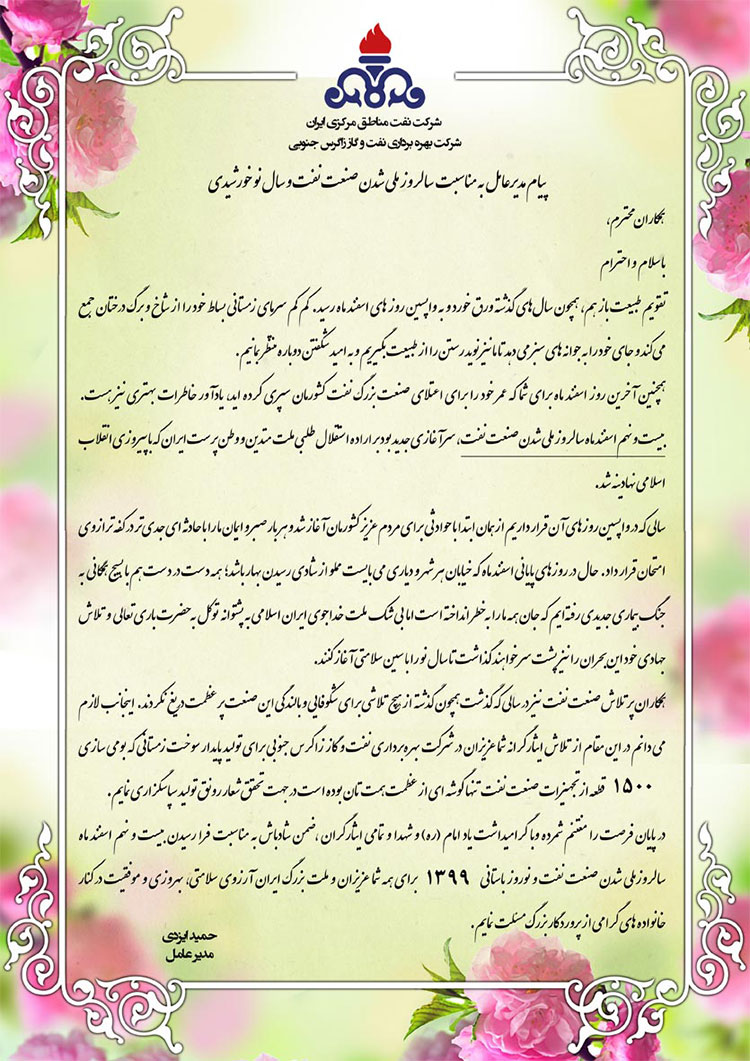 شرکت نفت مناطق مرکزی ایران
شرکت بهره برداری نفت و گاز زاگرس جنوبی
پیام مدیرعامل به مناسبت سالروز ملی شدن صنعت نفت و سال نو خورشیدی
همکاران محترم،
با سلام و احترام
تقویم طبیعت باز هم، همچون سال های گذشته ورق خورد و به واپسین روز های اسفند ماه رسید. کم کم سرمای زمستانی بساط خود را از شاخ و برگ درختان جمع
می کند و جای خود را به جوانه های سبز می دهد تا ما نیز نوید رستن را از طبیعت بگیریم و به امید شکفتن دوباره منتظر بمانیم.
همچنین آخرین روز اسفند ماه برای شما که عمر خود را برای اعتلای صنعت بزرگ نفت کشورمان سپری کرده اید، یادآور خاطرات بهتری نیز هست.
بیست و نهم اسفند ماه سالروز ملی شدن صنعت نفت، سرآغازی جدید بود بر اراده استقلال طلبی ملت متدین و وطن پرست ایران که با پیروزی انقلاب
اسلامی نهادینه شد.
سالی که در واپسین روز های آن قرار داریم از همان ابتدا با حوادثی برای مردم عزیز کشورمان آغاز شد و هر بار صبر و ایمان ما را با حادثه ای جدی تر در کفه ترازوی
امتحان قرار داد. حال در روز های پایانی اسفند ماه که خیابان هر شهر و دیاری می بایست مملو از شادی رسیدن بهار باشد؛ همه دست در دست هم با بسیج همگانی به
جنگ بیماری جدیدی رفته ایم که جان همه ما را به خطر انداخته است اما بی شک ملت خداجوی ایران اسلامی به پشتوانه توکل به حضرت باری تعالی و تلاش
جهادی خود این بحران را نیز پشت سر خواهند گذاشت تا سال نو را با سین سلامتی آغاز کنند.
همکاران پر تلاش صنعت نفت نیز در سالی که گذشت همچون گذشته از هیچ تلاشی برای شکوفایی و بالندگی این صنعت پر عظمت دریغ نکردند. اینجانب لازم
می دانم در این مقام از تلاش ایثارگرانه شما عزیزان در شرکت بهره برداری نفت و گاز زاگرس جنوبی برای تولید پایدار سوخت زمستانی که بومی سازی
۱۵۰۰ قطعه از تجهیزات صنعت نفت تنها گوشه ای از عظمت همت تان بوده است در جهت تحقق شعار رونق تولید سپاسگزاری نمایم.
در پایان فرصت را مغتنم شمرده و با گرامیداشت یاد امام (ره) و شهدا و تمامی ایثارگران، ضمن شادباش به مناسبت فرا رسیدن بیست و نهم اسفند ماه
سالروز ملی شدن صنعت نفت و نوروز باستانی ۱۳۹۹ برای همه شما عزیزان و ملت بزرگ ایران آرزوی سلامتی، بهروزی و موفقیت در کنار
خانواده های گرامی از پروردگار بزرگ مسئلت نمایم.
حمید ایزدی
مدیر عامل